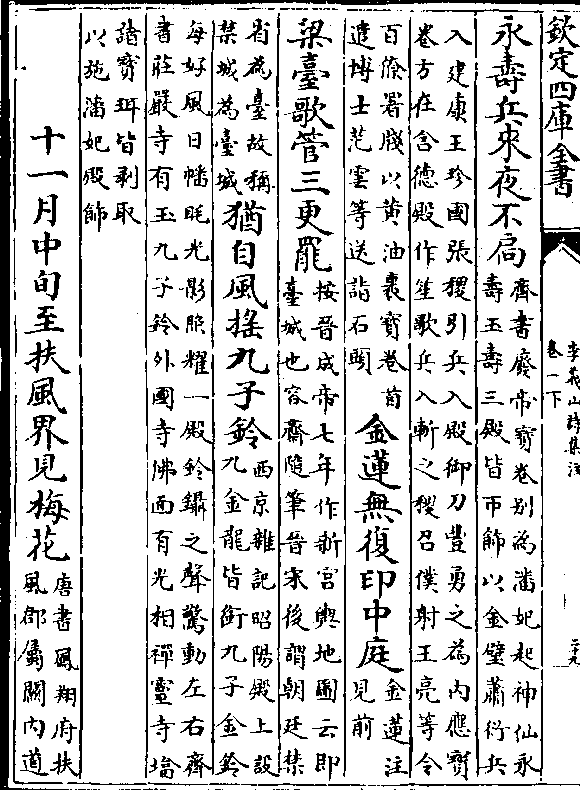 欽定四庫全書
李義山詩集注
卷一下
永壽兵來夜不扃齊書廢帝寶卷别為潘妃起神仙永
壽玉壽三殿皆帀飾以金璧蕭衍兵
入建康王珍國張稷引兵入殿御刀豐勇之為内應寶
卷方在含德殿作笙歌兵入斬之稷召僕射王亮等令
百僚署牋以黄油裹寶卷首
遣博士范雲等送詣石頭
金蓮無復印中庭金蓮注
見前
梁臺歌管三更罷按晉成帝七年作新宮輿地圖云即
臺城也容齋隨筆晉宋後謂朝廷禁
省為臺故稱
禁城為臺城
猶自風摇九子鈴西京雜記昭陽殿上設
九金龍皆銜九子金鈴
每好風日幡眊光影照耀一殿鈴鑷之聲驚動左右齊
書莊嚴寺有玉九子鈴外國寺佛面有光相禪靈寺塔
諸寶珥皆剥取
以施潘妃殿飾
十一月中旬至扶風界見梅花唐書鳳翔府扶
風郡屬關内道